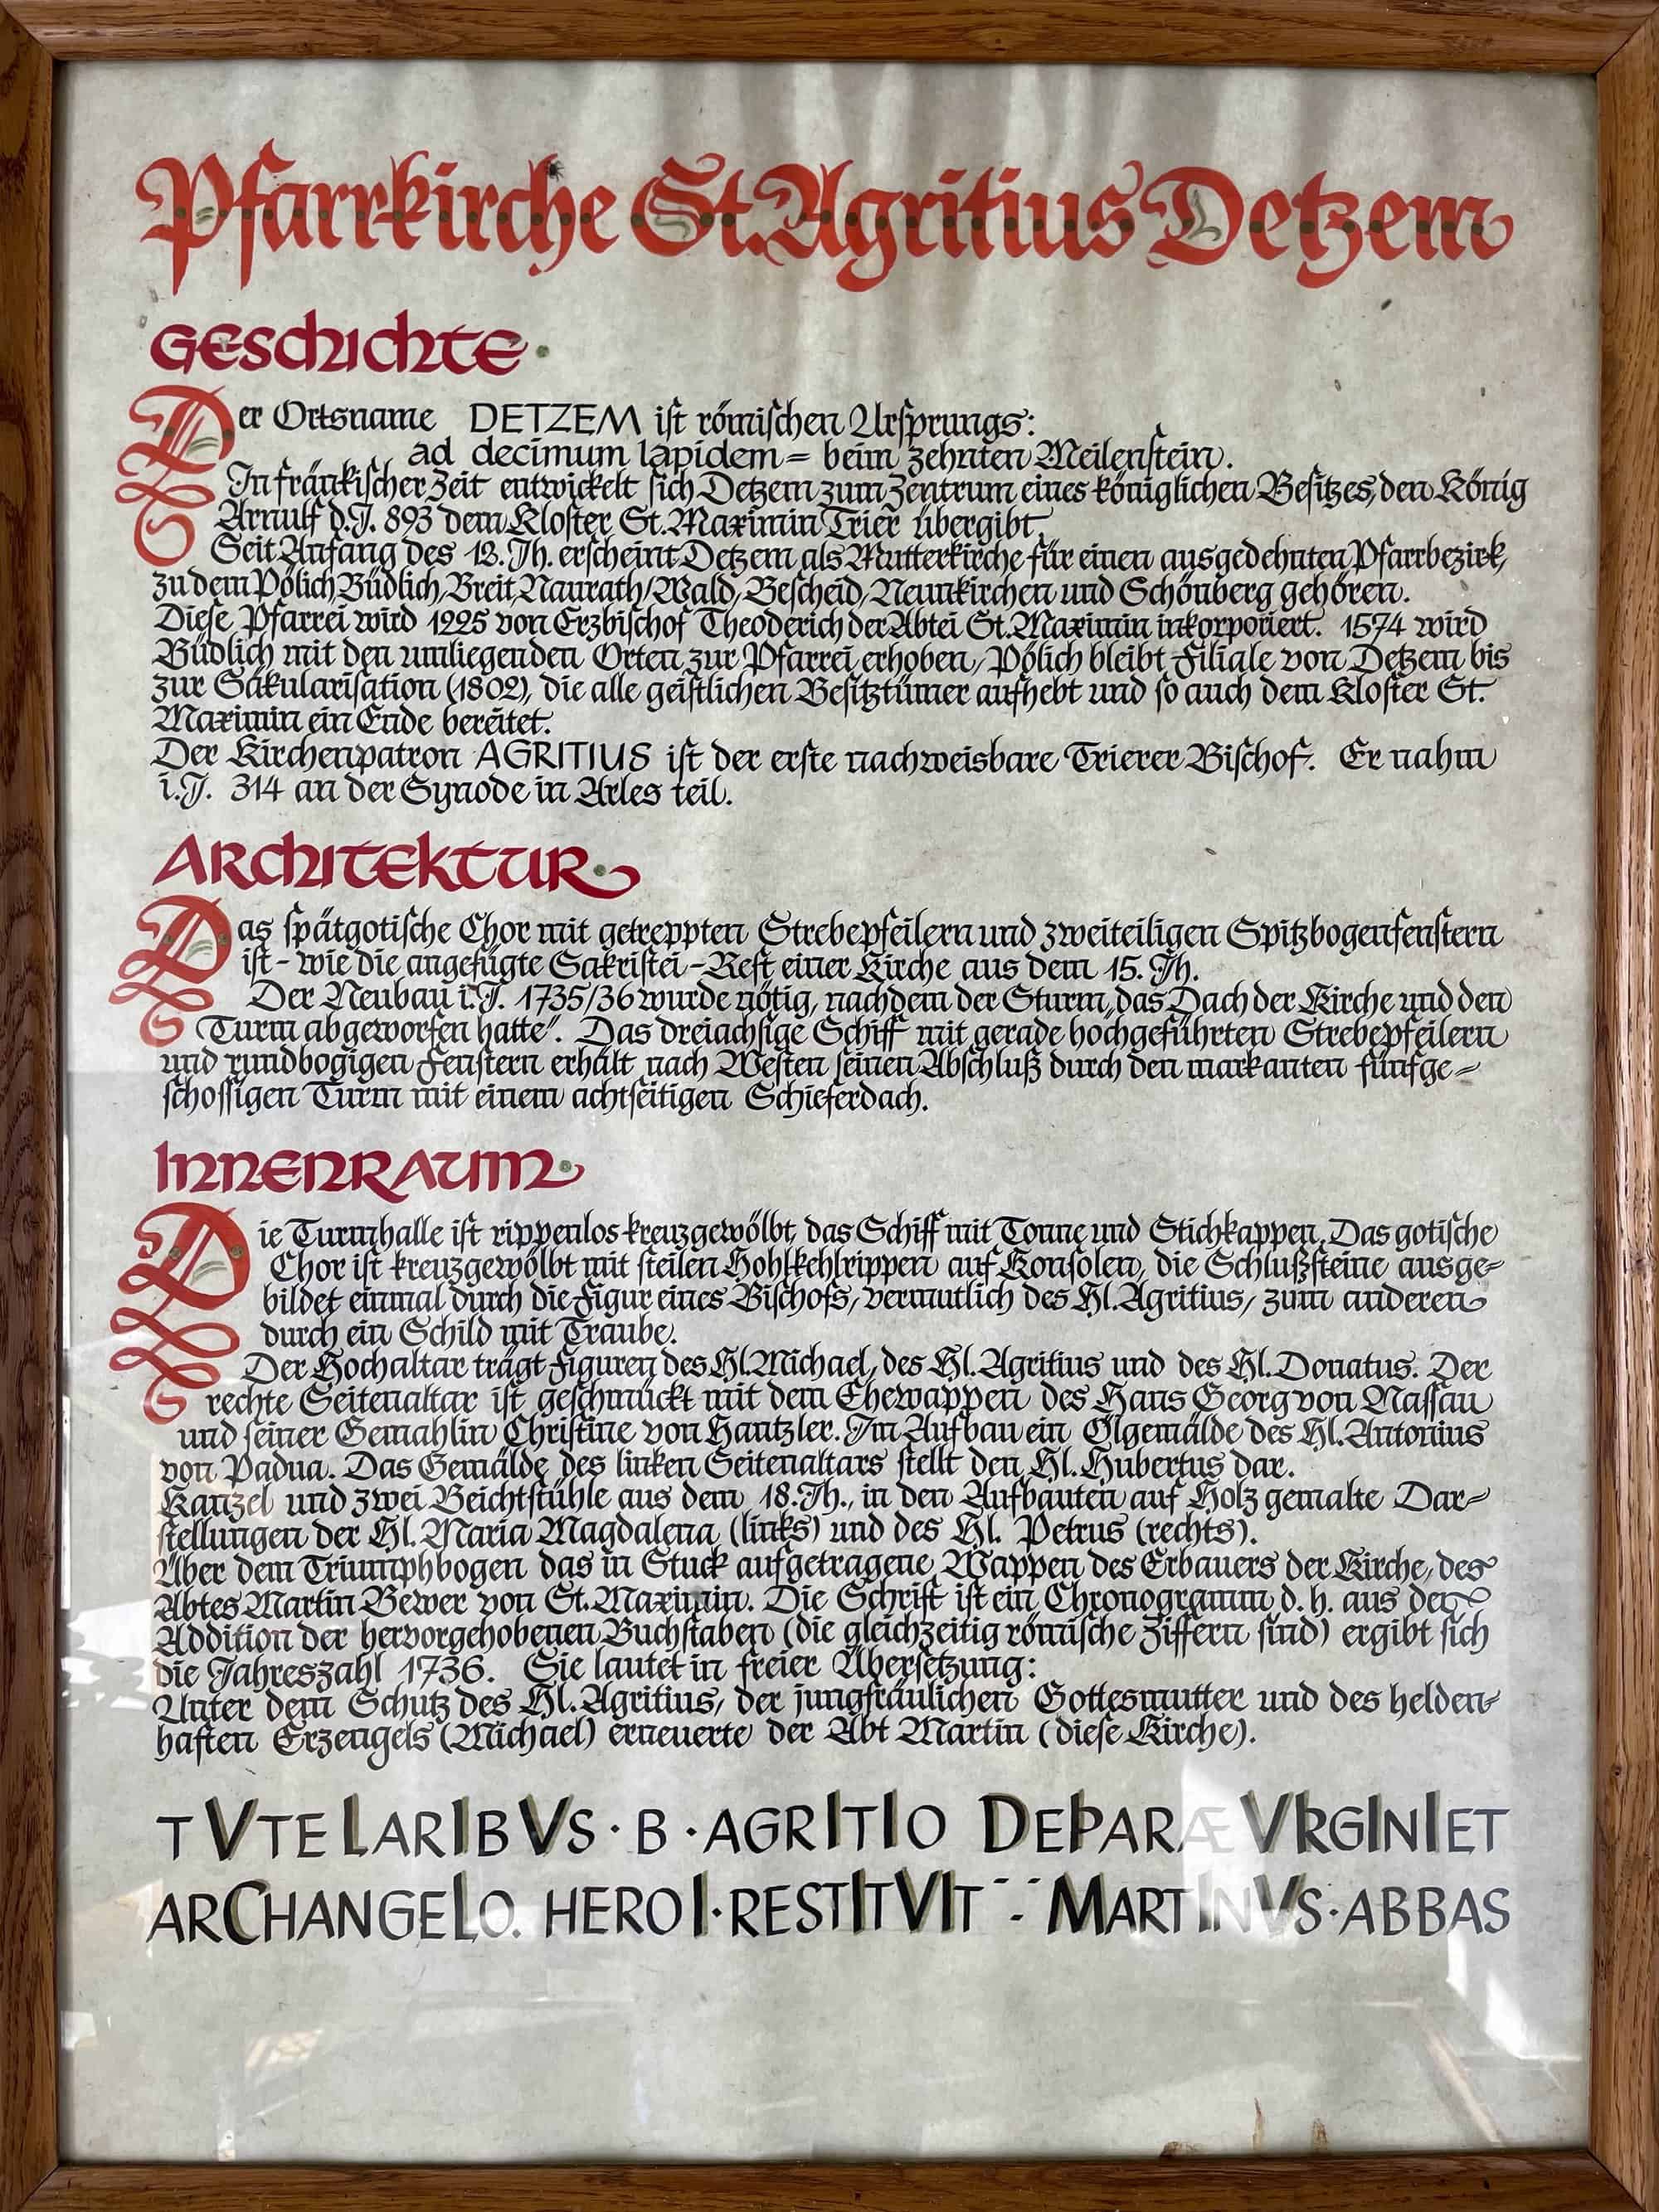 Pfarrkirche St. Agritius Detzem
GESCHICHTE
Der Ortsname DETZEM ist römischen Ursprungs:
ad decimum lapidem = beim zehnten Meilenstein.
In fränkischer Zeit entwickelt sich Detzem zum Zentrum eines königlichen Besitzes, den König
Arnulf d.J. 893 dem Kloster St. Maximin Trier übergibt.
Seit Anfang des 12. Jh. erscheint Detzem als Mutterkirche für einen ausgedehnten Pfarrbezirk,
zu dem Pölich, Büdlich, Breit, Naurath/Wald, Bescheid, Neunkirchen und Schönberg gehören.
Diese Pfarrei wird 1225 von Erzbischof Theoderich der Abtei St. Maximin inkorporiert. 1574 wird
Büdlich mit den umliegenden Orten zur Pfarrei erhoben, Pölich bleibt Filiale von Detzem bis
zur Säkularisation (1802), die alle geistlichen Besitztümer aufhebt und so auch dem Kloster St.
Maximin ein Ende bereitet.
Der Kirchenpatron AGRITIUS ist der erste nachweisbare Trierer Bischof. Er nahm
i.J. 314 an der Synode in Arles teil.
ARCHITEKTUR
Das spätgotische Chor mit getreppten Strebepfeilern und zweiteiligen Spitzbogenfenstern
ist - wie die angefügte Sakristei - Rest einer Kirche aus dem 15. Jh.
Der Neubau i.J. 1735/36 wurde nötig, nachdem der Sturm "das Dach der Kirche und den
Turm abgeworfen hatte". Das dreiachsige Schiff mit gerade hochgeführten Strebepfeilern
und rundbogigen Fenstern erhält nach Westen seinen Abschluß durch den markanten fünfge=
schossigen Turm mit einem achtseitigen Schieferdach.
INNENRAUM
Die Turmhalle ist rippenlos kreuzgewölbt, das Schiff mit Tonne und Stichkappen. Das gotische
Chor ist kreuzgewölbt mit steilen Hohlkehlrippen auf Konsolen, die Schlußsteine ausge=
bildet einmal durch die Figur eines Bischofs, vermutlich des Hl. Agritius, zum anderen
durch ein Schild mit Traube.
Der Hochaltar trägt Figuren des Hl. Michael, des Hl. Agritius und des Hl. Donatus. Der
rechte Seitenaltar ist geschmückt mit dem Ehewappen des Hans Georg von Nassau
und seiner Gemahlin Christine von Hantzler. Im Aufbau ein Ölgemälde des Hl. Antonius
von Padua. Das Gemälde des linken Seitenaltars stellt den Hl. Hubertus dar.
Kanzel und zwei Beichtstühle aus dem 18. Jh., in den Aufbauten auf Holz gemalte Dar=
stellungen der Hl. Maria Magdalena (links) und des Hl. Petrus (rechts).
Über dem Triumphbogen das in Stuck aufgetragene Wappen des Erbauers der Kirche, des
Abtes Martin Bewer von St. Maximin. Die Schrift ist ein Chronogramm d. h. aus der
Addition der hervorgehobenen Buchstaben (die gleichzeitig römische Ziffern sind) ergibt sich
die Jahreszahl 1736. Sie lautet in freier Übersetzung:
Unter dem Schutz des Hl. Agritius, der jungfräulichen Gottesmutter und des helden=
haften Erzengels (Michael) erneuerte der Abt Martin (diese Kirche).
TVTELARIBVS · B · AGRITIO DEIPARÆ VIRGINI ET
ARCHANGELO. HEROI · RESTITVIT - - - MARTINVS · ABBAS